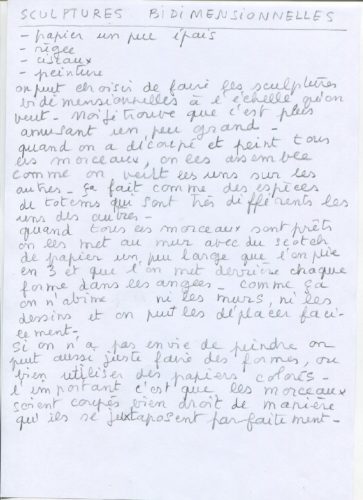 SCULPTURES BIDIMENSIONNELLES
- papier un peu épais
- règle
- ciseaux
- peinture
on peut choisir de faire les sculptures
bidimensionnelles à l'échelle qu'on
veut - moi je trouve que c'est plus
amusant un peu grand -
quand on a découpé et peint tous
les morceaux, on les assemble
comme on veut les uns sur les
autres - ça fait comme des espèces
de totems qui sont très différents les
uns des autres -
quand tous les morceaux sont prêts
on les met au mur avec du scotch
de papier un peu large que l'on plie
en 3 et que l'on met derrière chaque
forme dans les angles - comme ça
on n'abîme ni les murs, ni les
dessins et on peut les déplacer faci-
lement -
Si on n'a pas envie de peindre on
peut aussi juste faire des formes, ou
bien utiliser des papiers colorés -
l'important c'est que les morceaux
soient coupés bien droit de manière
qu'ils se juxtaposent parfaitement -